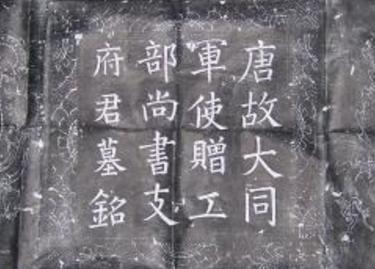 唐故大同
軍使贈工
部尚書支
府君墓銘